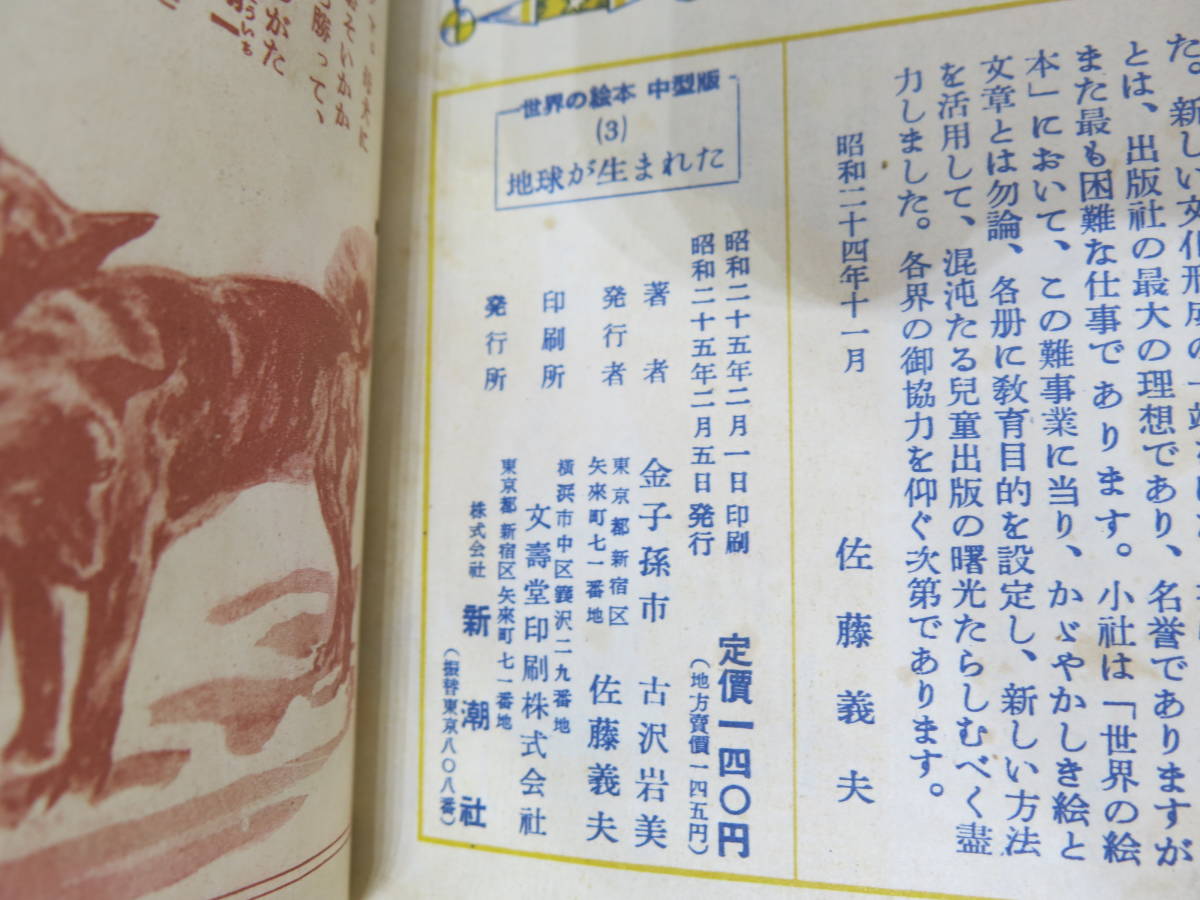 た。新しい文化形成の一
とは、出版社の最大の理想であり、名誉でありますが
また最も困難な仕事であります。小社は「世界の絵
本」において、この難事業に当り、かゞやかしき絵と
文章とは勿論、各册に敎育目的を設定し、新しい方法
を活用して、混沌たる兒童出版の曙光たらしむべく盡
力しました。各界の御協力を仰ぐ次第であります。
昭和二十四年十一月
佐藤義夫
世界の絵本 中型版
(3)
地球が生まれた
昭和二十五年二月一日印刷
昭和二十五年二月五日発行
定價一四〇円
(地方賣價一四五円)
著者 金子孫市 古沢岩美
発行者 東京都新宿区
矢來町七一番地 佐藤義夫
印刷所 横浜市中区簑沢二九番地
文壽堂印刷株式会社
発行所 東京都新宿区矢來町七一番地
株式会社 新潮社
(振替東京八〇八番)
おそいかか
勝って、
がた